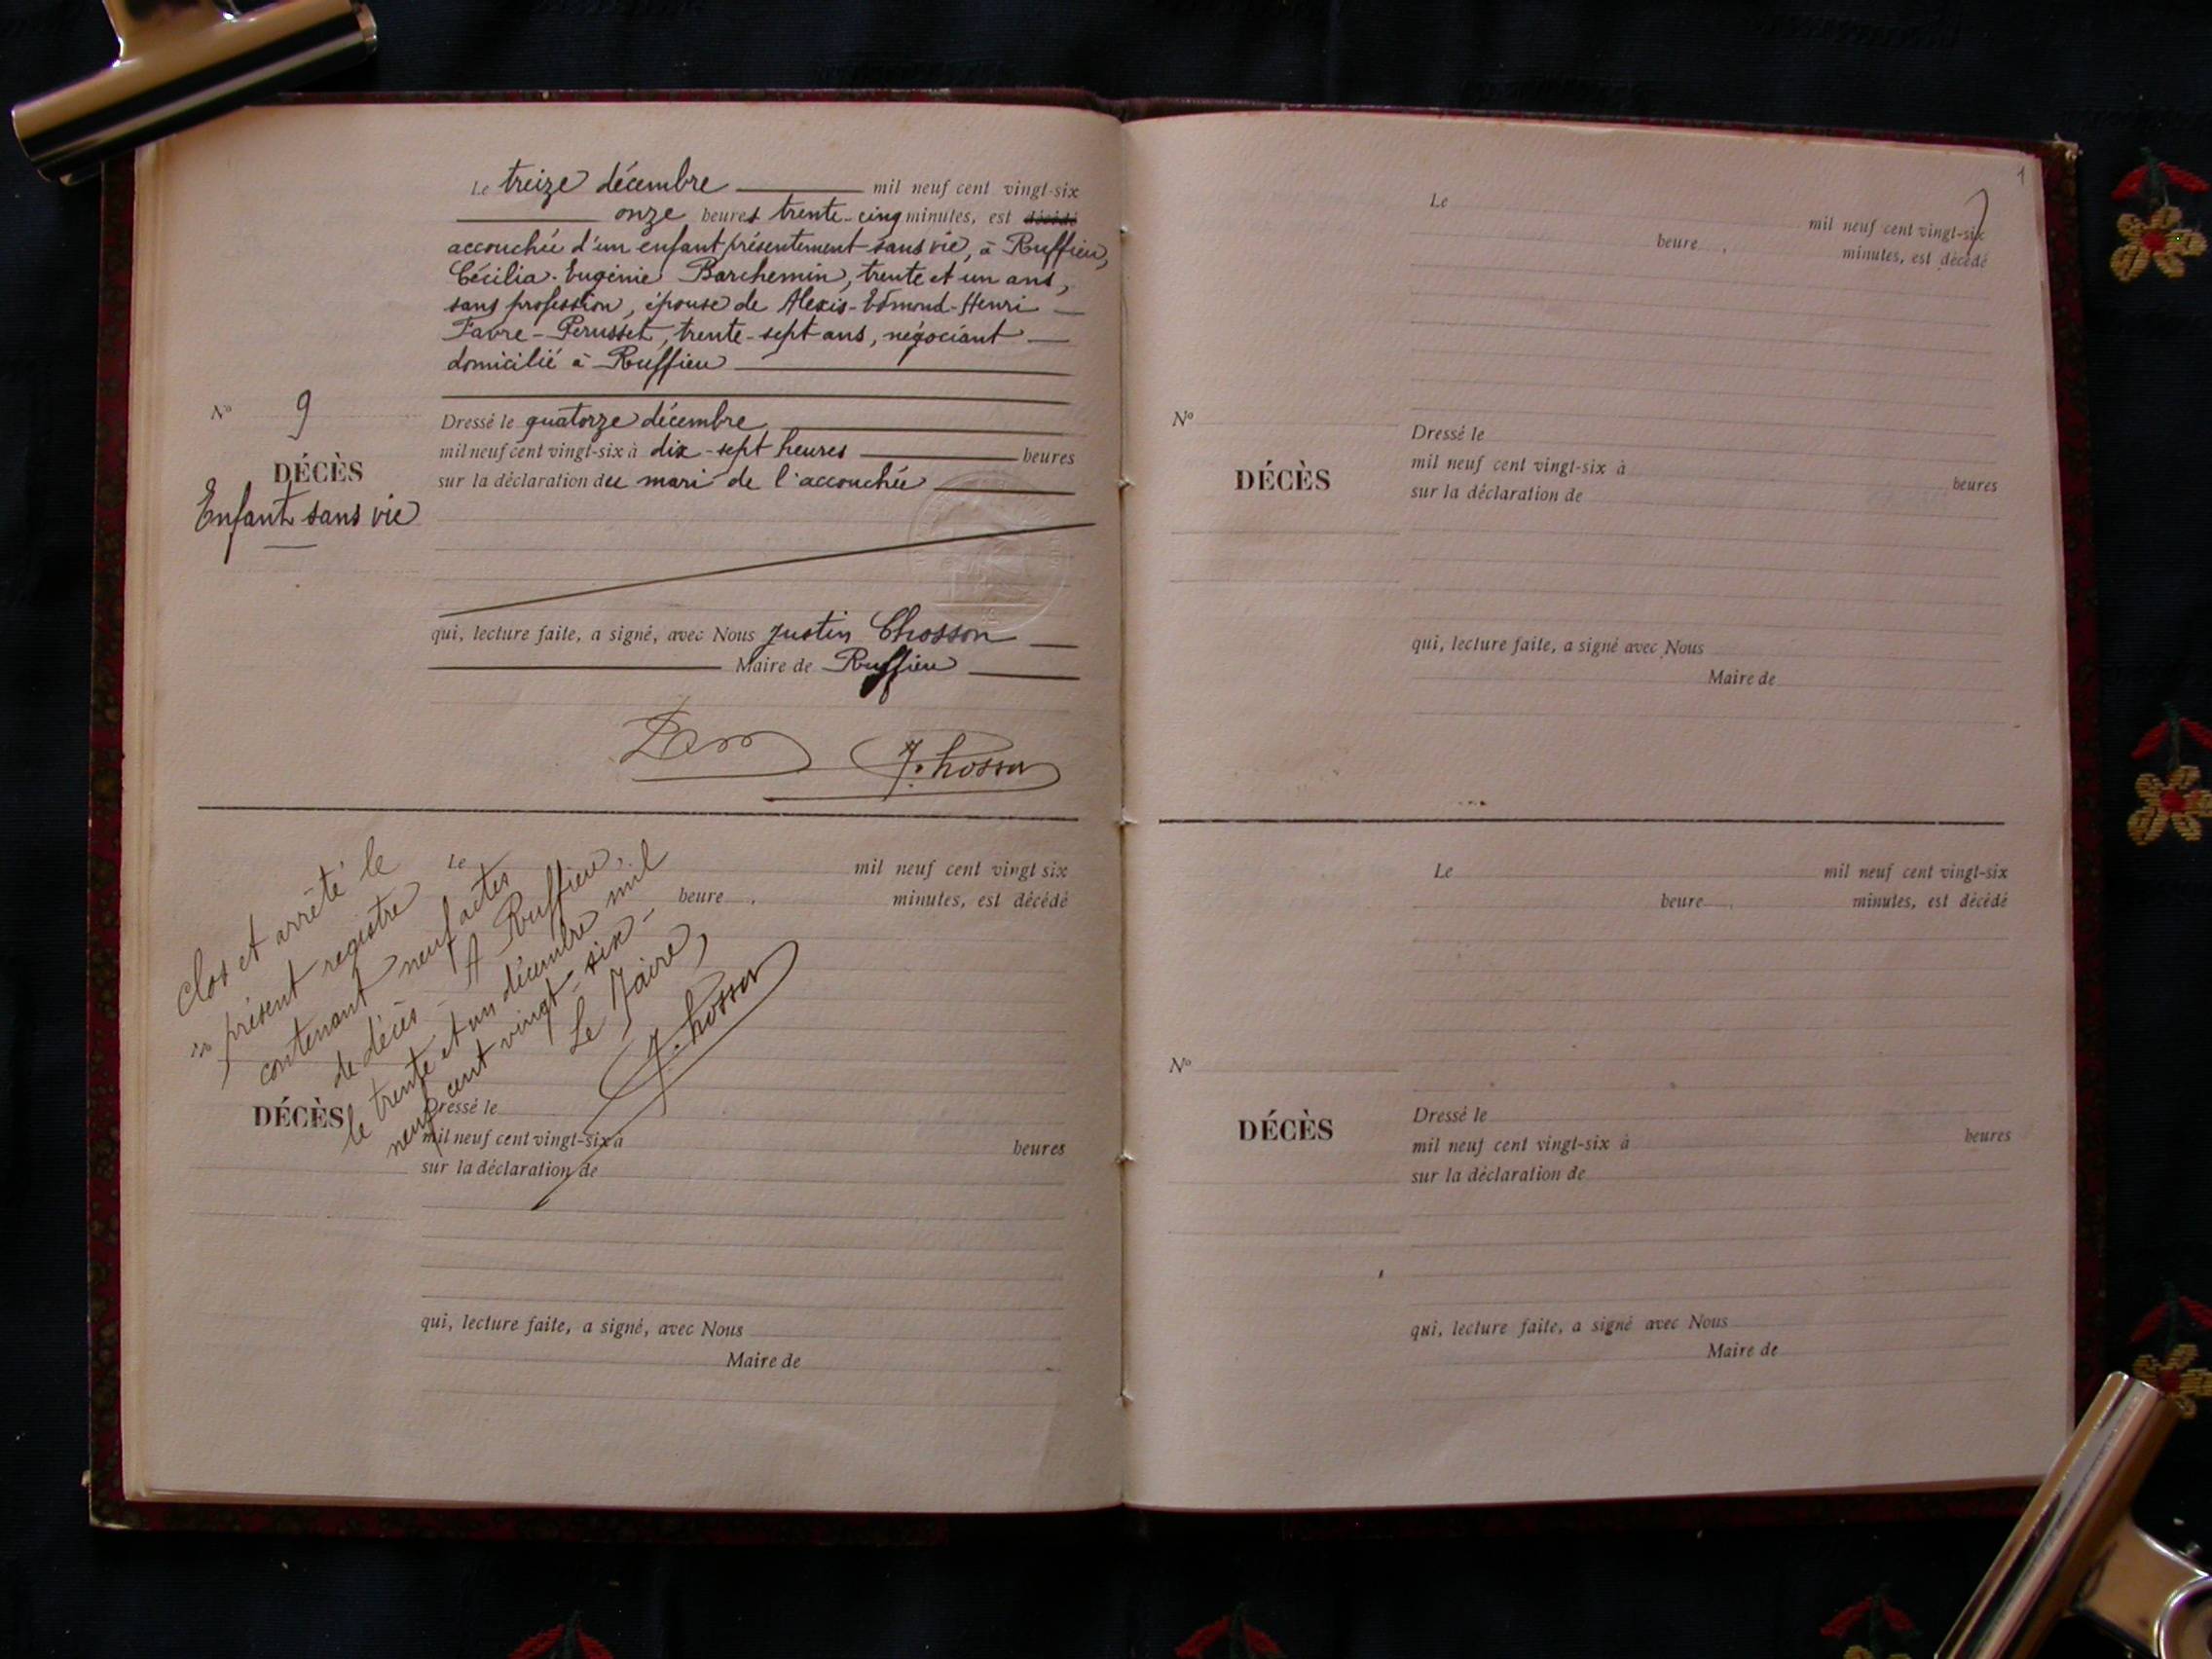 Le treize décembre mil neuf cent vingt-six
onze heures trente-cinq minutes, est décédé
accouchée d'un enfant présentement sans vie, à Ruffieu,
Cécilia-Eugénie Barchemin, trente et un ans,
sans profession, épouse de Alexis-Edmond-Henri
Favre-Perusset, trente-sept ans, négociant
domicilié à Ruffieu
N° 9
DÉCÈS
Enfant sans vie
Dressé le quatorze décembre
mil neuf cent vingt-six à dix-sept heures heures
sur la déclaration du mari de l'accouchée
qui, lecture faite, a signé, avec Nous Justin Chosson
Maire de Ruffieu
J. Chosson
Clos et arrêté le
présent registre
contenant neuf actes
de décès - A Ruffieu,
le trente et un décembre mil
neuf cent vingt-six -
Le Maire,
J. Chosson
Le mil neuf cent vingt six
heure minutes, est décédé
DÉCÈS
Dressé le
mil neuf cent vingt-six à heures
sur la déclaration de
qui, lecture faite, a signé, avec Nous
Maire de
Le mil neuf cent vingt-six
heure minutes, est décédé
N°
DÉCÈS
Dressé le
mil neuf cent vingt-six à heures
sur la déclaration de
qui, lecture faite, a signé avec Nous
Maire de
Le mil neuf cent vingt-six
heure minutes, est décédé
N°
DÉCÈS
Dressé le
mil neuf cent vingt-six à heures
sur la déclaration de
qui, lecture faite, a signé avec Nous
Maire de